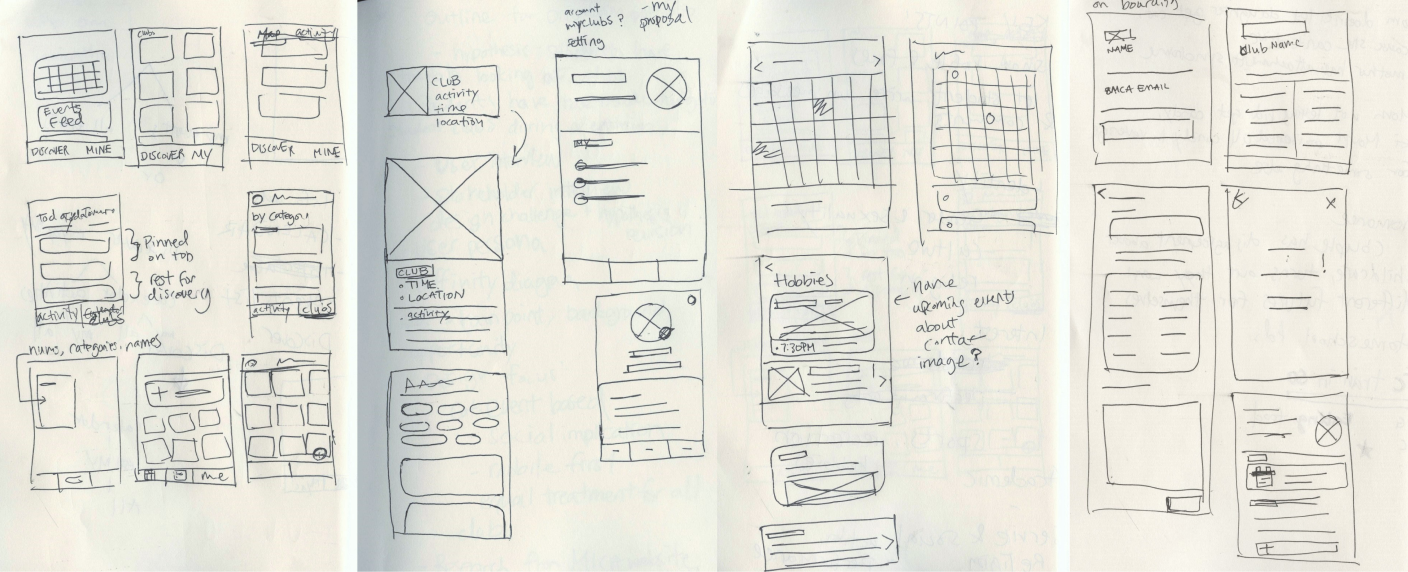 EVENTS
FEED
DISCOVER MINE
clubs
DISCOVER MY
MAP activity
DISCOVER MINE
Pinned
on top
rest for
discovery
activity
by categori
activity clubs
name, categories, names
+
me
account
myclubs?
setting
-my
proposal
CLUB
activity
time
location
CLUB
• TIME
• LOCATION
• activity
<
>
<
Hobbies
• 7:30PM
!
>
← name
upcoming event
about
contact
image?
>
on boarding
NAME
BMCA EMAIL
Club Name
<
x
!
+